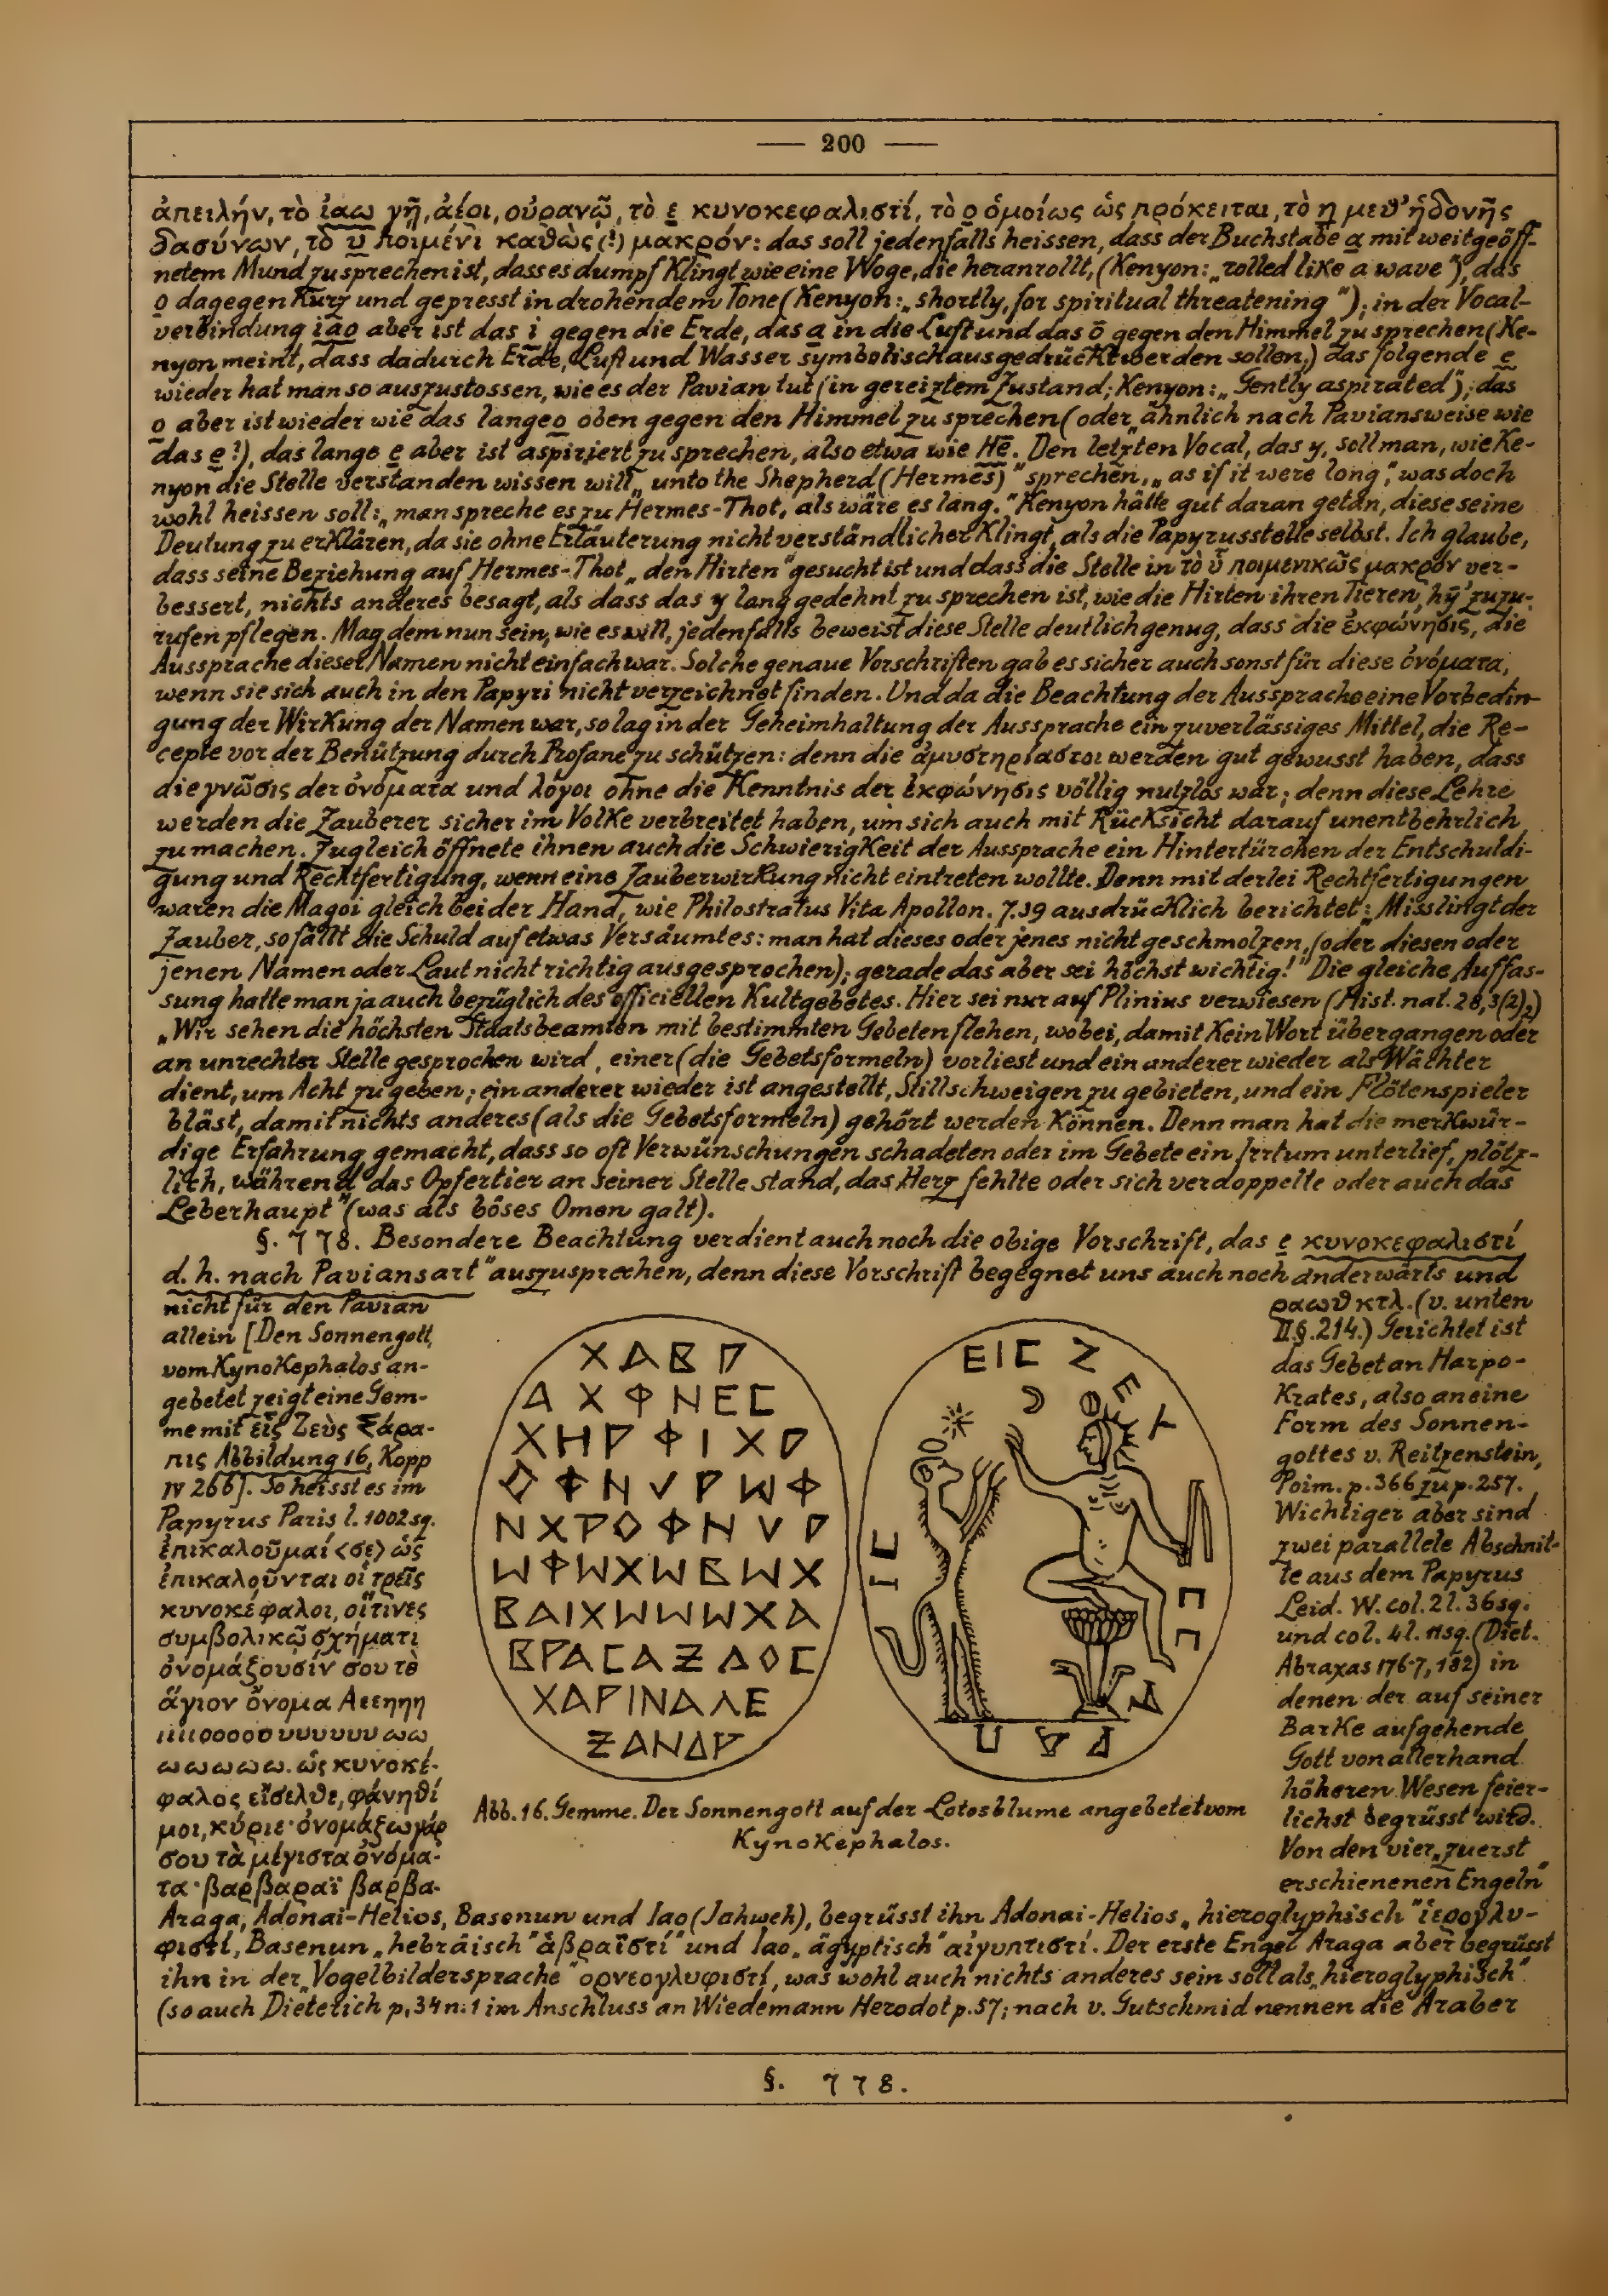 — 200 —
ἀπειλήν, τὸ ἰαω γῇ, ἀέρι, οὐρανῷ, τὸ ε κυνοκεφαλιστί, τὸ ο ὁμοίως ὡς πρόκειται, τὸ η μεθ' ἡδονῆς
δασύνων, τὸ υ ποιμένι καθὼς (!) μακρόν: das soll jedenfalls heissen, dass der Buchstabe a mit weitgeöff-
netem Mund zu sprechen ist, dass es dumpf klingt wie eine Woge, die heranrollt, (Kenyon: „rolled like a wave"), das
o dagegen kurz und gepresst in drohendem Tone (Kenyon: „shortly, for spiritual threatening"); in der Vocal-
verbindung iāo aber ist das i gegen die Erde, das a in die Luft und das ō gegen den Himmel zu sprechen (Ke-
nyon meint, dass dadurch Erde, Luft und Wasser symbolisch ausgedrückt werden sollen,) das folgende e
wieder hat man so auszustossen, wie es der Pavian tut (in gereiztem Zustand; Kenyon: „Gently aspirated"); das
o aber ist wieder wie das lange o oben gegen den Himmel zu sprechen (oder ähnlich nach Paviansweise wie
das e !), das lange e aber ist aspiriert zu sprechen, also etwa wie Hē. Den letzten Vocal, das y, soll man, wie Ke-
nyon die Stelle verstanden wissen will „unto the Shepherd (Hermes)" sprechen, „as if it were long", was doch
wohl heissen soll: „man spreche es zu Hermes-Thot, als wäre es lang." Kenyon hätte gut daran getan, diese seine
Deutung zu erklären, da sie ohne Erläuterung nicht verständlicher klingt, als die Papyrusstelle selbst. Ich glaube,
dass seine Beziehung auf Hermes-Thot „den Hirten" gesucht ist und dass die Stelle in τὸ ῡ ποιμενικῶς μακρόν ver-
bessert, nichts anderes besagt, als dass das y lang gedehnt zu sprechen ist, wie die Hirten ihren Tieren „hȳ" zuzu-
rufen pflegen. Mag dem nun sein, wie es will, jedenfalls beweist diese Stelle deutlich genug, dass die ἐκφώνησις, die
Aussprache dieser Namen nicht einfach war. Solche genaue Vorschriften gab es sicher auch sonst für diese ὀνόματα,
wenn sie sich auch in den Papyri nicht verzeichnet finden. Und da die Beachtung der Aussprache eine Vorbedin-
gung der Wirkung der Namen war, so lag in der Geheimhaltung der Aussprache ein zuverlässiges Mittel, die Re-
cepte vor der Benützung durch Profane zu schützen: denn die ἀμυστηρίαστοι werden gut gewusst haben, dass
die γνῶσις der ὀνόματα und λόγοι ohne die Kenntnis der ἐκφώνησις völlig nutzlos war; denn diese Lehre
werden die Zauberer sicher im Volke verbreitet haben, um sich auch mit Rücksicht darauf unentbehrlich
zu machen. Zugleich öffnete ihnen auch die Schwierigkeit der Aussprache ein Hintertürchen der Entschuldi-
gung und Rechtfertigung, wenn eine Zauberwirkung nicht eintreten wollte. Denn mit derlei Rechtfertigungen
waren die Magoi gleich bei der Hand, wie Philostratus Vita Apollon. 7.39 ausdrücklich berichtet: „Misslingt der
Zauber, so fällt die Schuld auf etwas Versäumtes: man hat dieses oder jenes nicht geschmolzen, (oder diesen oder
jenen Namen oder Laut nicht richtig ausgesprochen); gerade das aber sei höchst wichtig!" Die gleiche Auffas-
sung hatte man ja auch bezüglich des officiellen Kultgebetes. Hier sei nur auf Plinius verwiesen (Hist. nat. 28,3(2),)
„Wir sehen die höchsten Staatsbeamten mit bestimmten Gebeten flehen, wobei, damit kein Wort übergangen oder
an unrechter Stelle gesprochen wird, einer (die Gebetsformeln) vorliest und ein anderer wieder als Wächter
dient, um Acht zu geben; ein anderer wieder ist angestellt, Stillschweigen zu gebieten, und ein Flötenspieler
bläst, damit nichts anderes (als die Gebetsformeln) gehört werden können. Denn man hat die merkwür-
dige Erfahrung gemacht, dass so oft Verwünschungen schadeten oder im Gebete ein Irrtum unterlief, plötz-
lich, während das Opfertier an seiner Stelle stand, das Herz fehlte oder sich verdoppelte oder auch das
Leberhaupt" (was als böses Omen galt).
§. 778. Besondere Beachtung verdient auch noch die obige Vorschrift, das e κυνοκεφαλιστί
d. h. nach Paviansart" auszusprechen, denn diese Vorschrift begegnet uns auch noch anderwärts und
nicht für den Pavian
allein [Den Sonnengott,
vom Kynokephalos an-
gebetet zeigt eine Gem-
me mit εἷς Ζεὺς Σάρα-
πις Abbildung 16, Kopp
IV 266]. So heisst es im
Papyrus Paris l. 1002 sq.
ἐπικαλοῦμαί <σε> ὡς
ἐπικαλοῦνται οἱ τρεῖς
κυνοκέφαλοι, οἵτινες
συμβολικῷ σχήματι
ὀνομάζουσίν σου τὸ
ἅγιον ὄνομα Αεεηηη
ιιιιοοοοουυυυυυωω
ωωωωω. ὡς κυνοκέ-
φαλος εἴσελθε, φάνηθί
μοι, κύριε· ὀνομάζω γάρ
σου τὰ μέγιστα ὀνόμα-
τα· βαρβαραϊ βαρβα-
ΧΑΒΡ
ΑΧΦΝΕC
ΧΗΡΦΙΧΡ
ΟΦΝVΡWΦ
ΝΧΡΟΦΝVΡ
WΦWΧWΒWΧ
ΒΑΙΧWWWΧΑ
ΒΡΑCΑΖΔΟC
ΧΑΡΙΝΑΛΕ
ΖΑΝΔΡ
ΕΙC ΖΕΥC CΑΡΑΠΙC
Abb. 16. Gemme. Der Sonnengott auf der Lotosblume angebetet vom
Kynokephalos.
ραωθ κτλ. (v. unten
II §. 214.) Gerichtet ist
das Gebet an Harpo-
krates, also an eine
Form des Sonnen-
gottes v. Reitzenstein,
Poim. p. 366 zu p. 257.
Wichtiger aber sind
zwei parallele Abschnit-
te aus dem Papyrus
Leid. W. col. 2 l. 36 sq.
und col. 4 l. 11 sq. (Diet.
Abraxas 176-7, 182) in
denen der auf seiner
Barke aufgehende
Gott von allerhand
höheren Wesen feier-
lichst begrüsst wird.
Von den vier „zuerst
erschienenen Engeln"
Araga, Adonai-Helios, Basenun und Iao (Jahweh), begrüsst ihn Adonai-Helios „hieroglyphisch" ἱερογλυ-
φιστί, Basenun „hebräisch" ἁβραϊστί" und Iao „ägyptisch" αἰγυπτιστί. Der erste Engel Araga aber begrüsst
ihn in der „Vogelbildersprache" ὀρνεογλυφιστί, was wohl auch nichts anderes sein soll als „hieroglyphisch"
(so auch Dieterich p. 34 n. 1 im Anschluss an Wiedemann Herodot p. 57; nach v. Gutschmid nennen die Araber
§. 778.